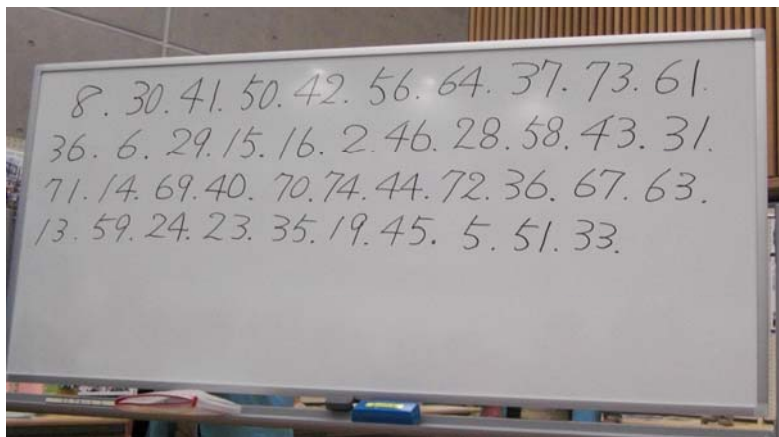 8. 30. 41. 50. 42. 56. 64. 37. 73. 61.
36. 6. 29. 15. 16. 2. 46. 28. 58. 43. 31.
71. 14. 69. 40. 70. 74. 44. 72. 36. 67. 63.
13. 59. 24. 23. 35. 19. 45. 5. 51. 33.